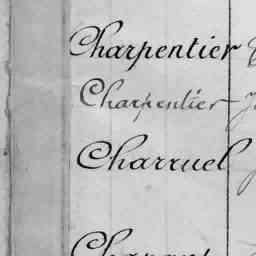 Charpentier
Charpentier
Charruel